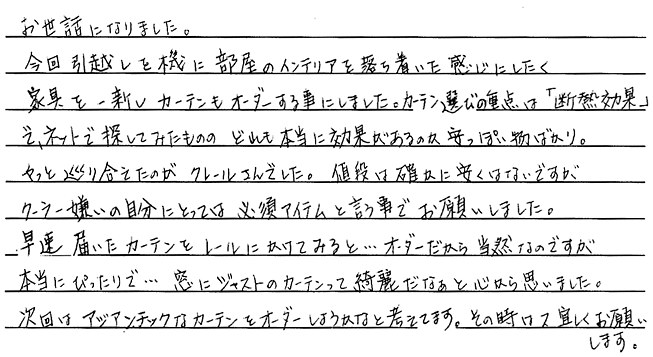 お世話になりました。
今回引越しを機に部屋のインテリアを落ち着いた感じにしたく
家具を一新しカーテンもオーダーする事にしました。カーテン選びの重点は「断熱効果」
で、ネットで探してみたものの どれも本当に効果があるのか 安っぽい物ばかり。
やっと巡り合えたのが クレールさんでした。値段は確かに安くはないですが
クーラー嫌いの自分にとっては 必須アイテムと言う事で お願いしました。
早速 届いたカーテンを レールにかけてみると…オーダーだから当然なのですが
本当にぴったりで… 窓にジャストのカーテンって綺麗だなぁと心から思いました。
次回はアジアンチックなカーテンをオーダーしようかなと考えてます。その時はス宜しくお願い
します。